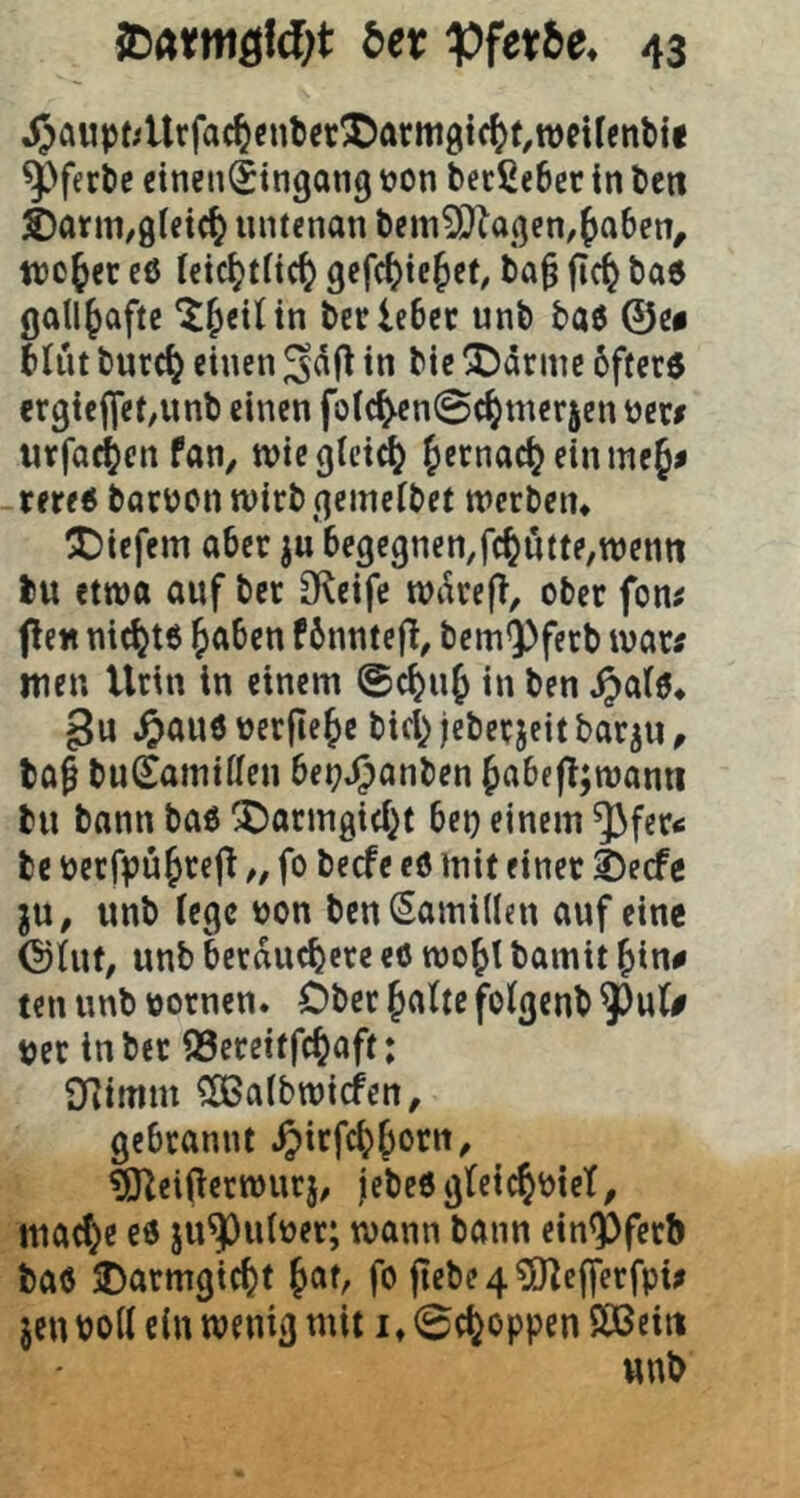 Darmgicht der Pferde. 43
Haupt-Ursachen der Darmgicht, weilen die
Pferde einen Eingang von der Leber in den
Darm, gleich untenan dem Magen, haben,
woher es leichtlich geschiehet, daß sich das
gallhafte Theil in der Leber und das Ge-
blüt durch einen Zäst in die Därme öfters
ergiesset, und einen solchen Schmerzen ver-
ursachen kan, wie gleich hernach ein meh-
reres darvon wird gemeldet werden.
Diesem aber zu begegnen, schütte, wenn
du etwa auf der Reise wärest, oder son-
sten nichts haben könntest, dem Pferd war-
men Urin in einem Schuh in den Hals.
Zu Haus versiehe dich jederzeit darzu,
daß du Camillen bey Handen habest; wann
du dann das Darmgicht bey einem Pfer-
de verspührest,, so decke es mit einer Decke
zu, und lege von den Camillen auf eine
Glut, und beräuchere es wohl damit hin-
ten und vornen. Oder halte folgend Pul-
ver in der Bereitschaft:
Nimm Waldwicken,
gebrannt Hirschhorn,
Meisterwurz, jedes gleichviel,
mache es zu Pulver; wann dann ein Pferd
das Darmgicht hat, so siede 4 Messerspi-
zen voll ein wenig mit 1. Schoppen Wein
und